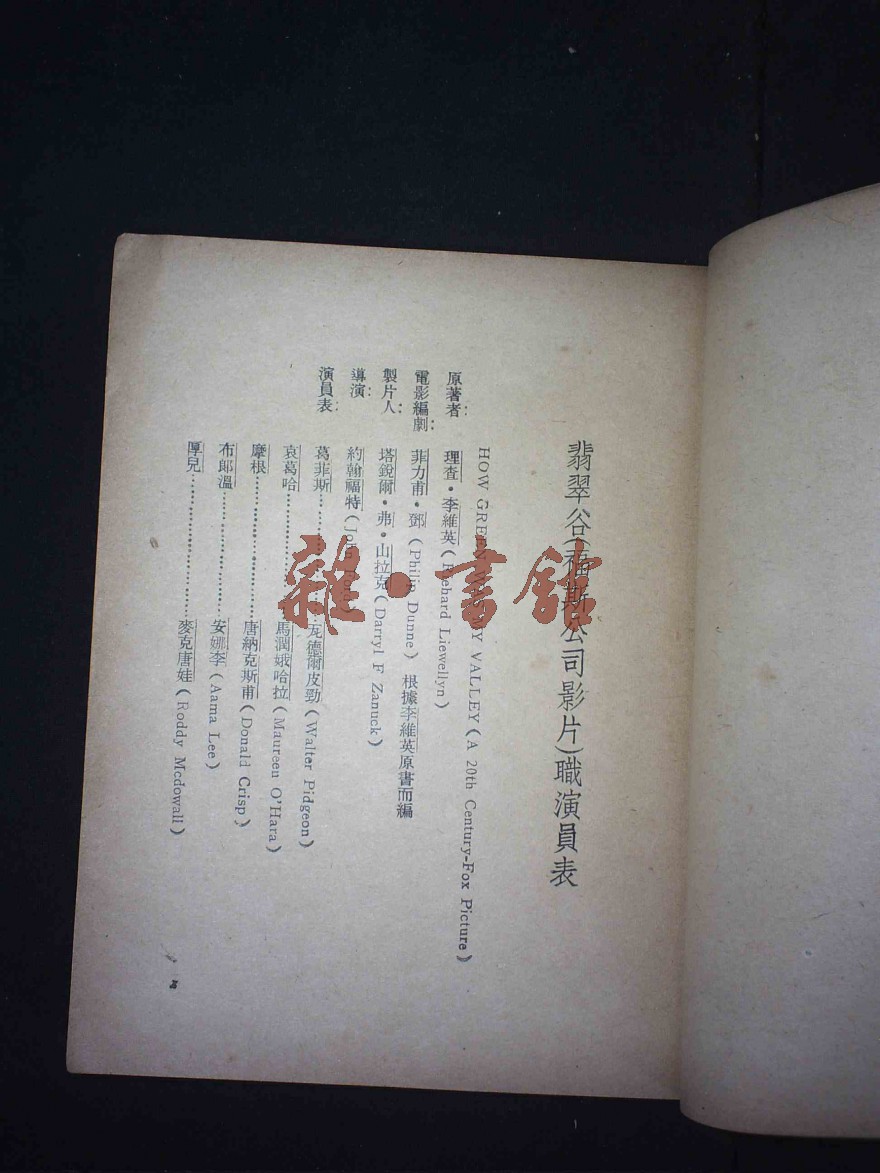 翡翠谷(福斯公司影片)職演員表
HOW GREEN WAS MY VALLEY (A 20th Century-Fox Picture)
原著者: 理查·李維英 (Richard Liewellyn)
電影編劇: 菲力甫·鄧 (Philip Dunne) 根據李維英原書而編
製片人: 塔銳爾·弗·山拉克 (Darryl F Zanuck)
導演: 約翰福特 (John Ford)
演員表: 葛菲斯……瓦德爾皮勁 (Walter Pidgeon)
哀葛哈……馬潤娥哈拉 (Maureen O'Hara)
摩根……唐納克斯甫 (Donald Crisp)
布郎溫……安娜李 (Aama Lee)
厚兒……麥克唐娃 (Roddy Mcdowall)
雜·書館